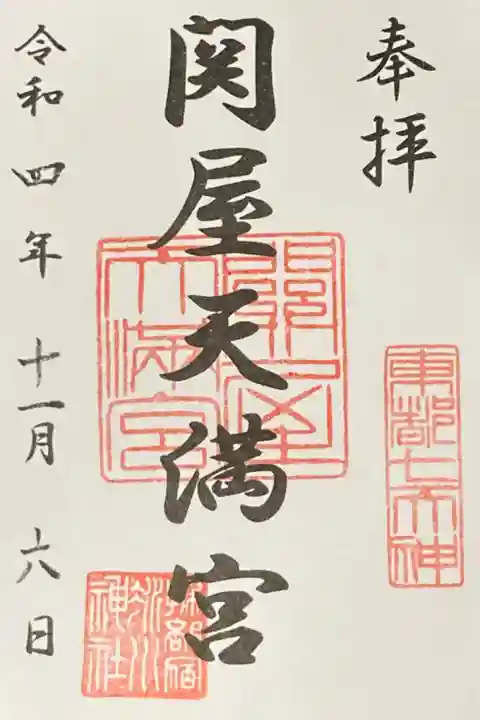 奉拝
東都七天神
関屋天満宮
關屋
天満宮
掃部宿
氷川
神社
令和四年十一月六日